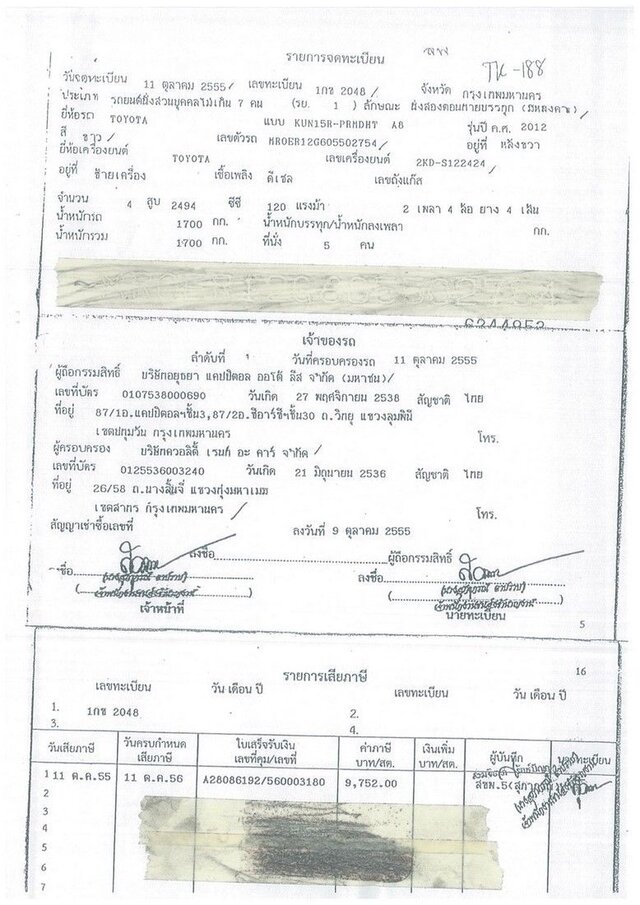 TK-188
รายการจดทะเบียน
วันจดทะเบียน 11 ตุลาคม 2555 เลขทะเบียน 1กช 2048 จังหวัด กรุงเทพมหานคร
ประเภท รถยนต์นั่งส่วนบุคคลไม่เกิน 7 คน (รย. 1 ) ลักษณะ นั่งสองตอนท้ายบรรทุก
ยี่ห้อรถ TOYOTA แบบ KUN15R-PRMDHT A8 รุ่นปี ค.ศ. 2012
สี ขาว เลขตัวรถ MR0ER12G605502754 อยู่ที่ หลังขวา
ยี่ห้อเครื่องยนต์ TOYOTA เลขเครื่องยนต์ 2KD-S122424
อยู่ที่ ซ้ายเครื่อง เชื้อเพลิง ดีเซล เลขถังแก๊ส
จำนวน 4 สูบ 2494 ซีซี 120 แรงม้า 2 เพลา 4 ล้อ ยาง 4 เส้น
น้ำหนักรถ 1700 กก. น้ำหนักบรรทุก/น้ำหนักลงเพลา กก.
น้ำหนักรวม 1700 กก. ที่นั่ง 5 คน
เจ้าของรถ
ลำดับที่ 1 วันที่ครอบครองรถ 11 ตุลาคม 2555
ผู้ถือกรรมสิทธิ์ บริษัทอยุธยา แคปปิตอล ออโต้ ลีส จำกัด (มหาชน)/
เลขที่บัตร 0107538000690 วันเกิด 27 พฤศจิกายน 2538 สัญชาติ ไทย
ที่อยู่ 87/1อ.แคปปิตอลฯชั้น3,87/2อ.ซีอาร์ซีฯชั้น30 ถ.วิทยุ แขวงลุมพินี
เขตปทุมวัน กรุงเทพมหานคร โทร.
ผู้ครอบครอง บริษัทควอลิตี้ เรนท์ อะ คาร์ จำกัด/
เลขที่บัตร 0125536003240 วันเกิด 21 มิถุนายน 2536 สัญชาติ ไทย
ที่อยู่ 26/58 ถ.นางลิ้นจี่ แขวงทุ่งมหาเมฆ
เขตสาทร กรุงเทพมหานคร / โทร.
สัญญาเช่าซื้อเลขที่ ลงวันที่ 9 ตุลาคม 2555
ลงชื่อ ผู้ถือกรรมสิทธิ์
ชื่อ ลงชื่อ
เจ้าหน้าที่ นายทะเบียน
5
16
รายการเสียภาษี
เลขทะเบียน วัน เดือน ปี เลขทะเบียน วัน เดือน ปี
1. 1กช 2048 2.
3. 4.
วันเสียภาษี วันครบกำหนดเสียภาษี ใบเสร็จรับเงิน เลขที่คุม/เลขที่ ค่าภาษี บาท/สต. เงินเพิ่ม บาท/สต. ผู้บันทึก
1 11 ต.ค.55 11 ต.ค.56 A28086192/560003180 9,752.00
2
3
4
5
6
7